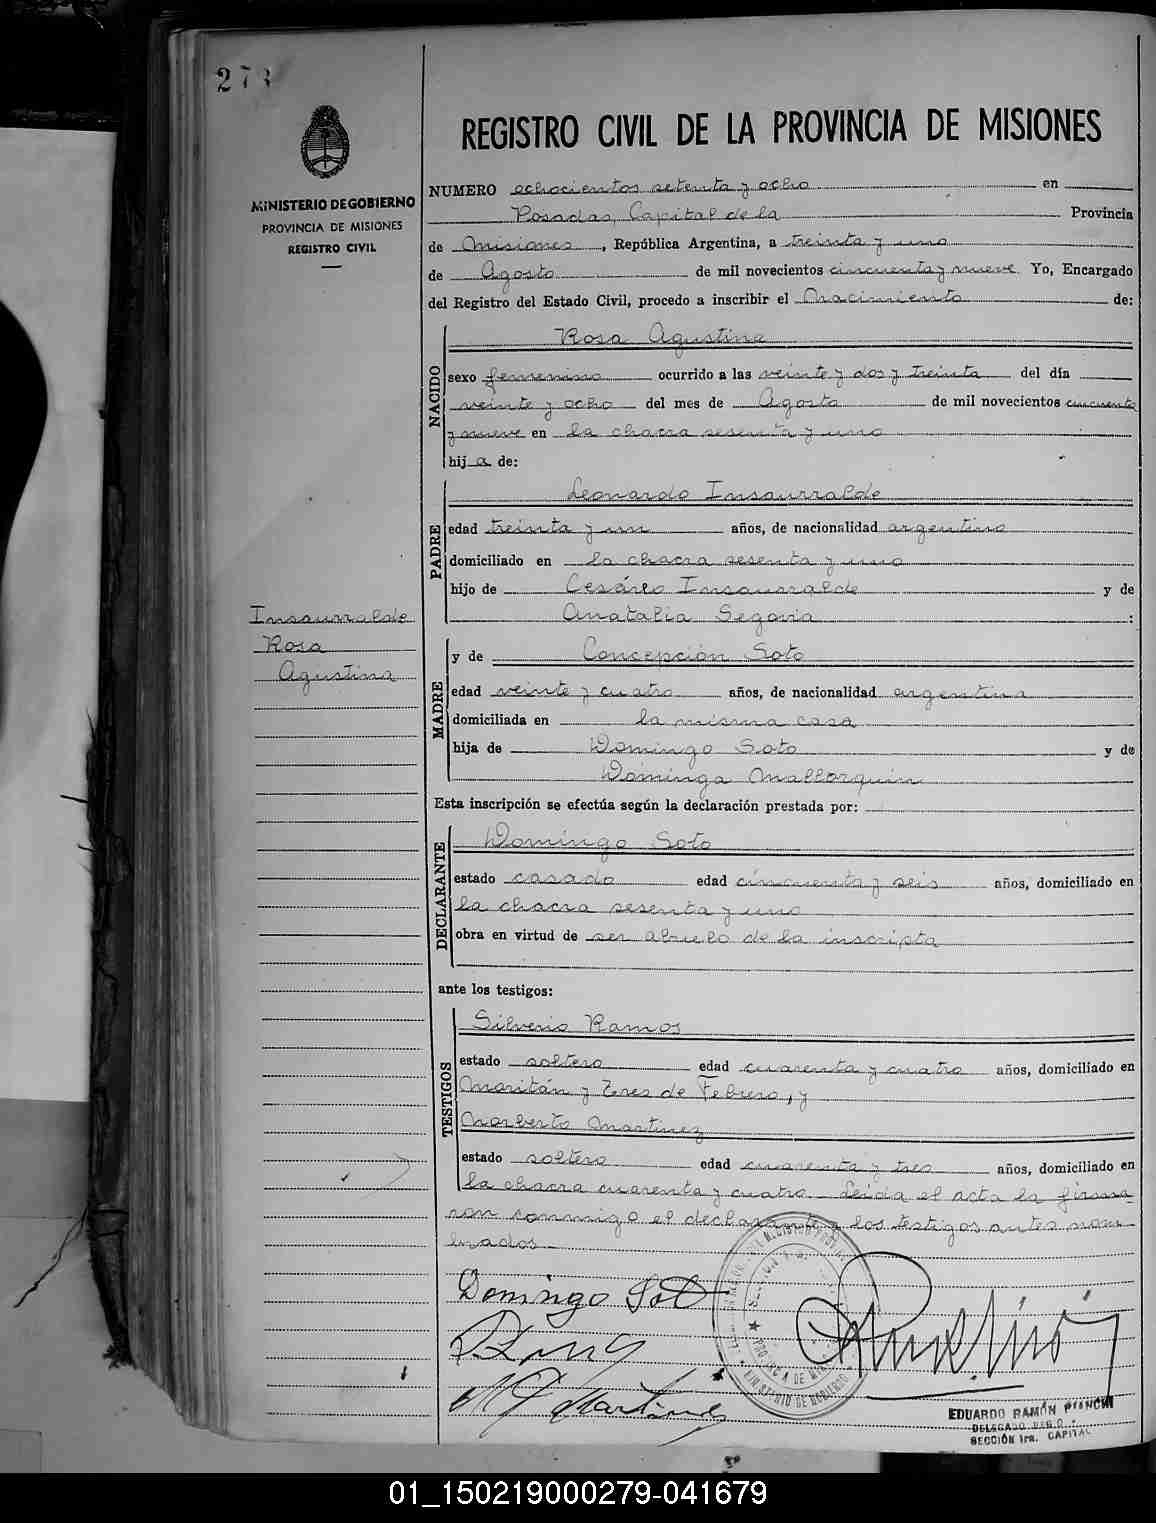 273
REGISTRO CIVIL DE LA PROVINCIA DE MISIONES
MINISTERIO DE GOBIERNO
PROVINCIA DE MISIONES
REGISTRO CIVIL
NUMERO ochocientos setenta y ocho en
Posadas, Capital de la Provincia
de Misiones, República Argentina, a treinta y uno
de Agosto de mil novecientos cincuenta y nueve Yo, Encargado
del Registro del Estado Civil, procedo a inscribir el Nacimiento de:
NACIDO
Rosa Agustina
sexo femenino ocurrido a las veinte y dos y treinta del día
veinte y ocho del mes de Agosto de mil novecientos cincuenta
y nueve en la chacra sesenta y uno
hija de:
PADRE
Leonardo Insaurralde
edad treinta y un años, de nacionalidad argentino
domiciliado en la chacra sesenta y uno
hijo de Cesáreo Insaurralde y de
Anatalia Segovia :
Insaurralde
Rosa
Agustina
MADRE
y de Concepción Soto
edad veinte y cuatro años, de nacionalidad argentina
domiciliada en la misma casa
hija de Domingo Soto y de
Dominga Mallorquin
Esta inscripción se efectúa según la declaración prestada por:
DECLARANTE
Domingo Soto
estado casado edad cincuenta y seis años, domiciliado en
la chacra sesenta y uno
obra en virtud de ser abuelo de la inscripta
ante los testigos:
TESTIGOS
Silverio Ramos
estado soltero edad cuarenta y cuatro años, domiciliado en
Moritán y Tres de Febrero, y
Norberto Martinez
estado soltero edad cuarenta y tres años, domiciliado en
la chacra cuarenta y cuatro. Leída el acta la firma-
ron conmigo el declarante y los testigos antes nom-
brados.
Domingo Soto
Martinez
EDUARDO RAMÓN PIANCHI
DELEGADO REG.
SECCIÓN 1ra. CAPITAL
01_150219000279-041679